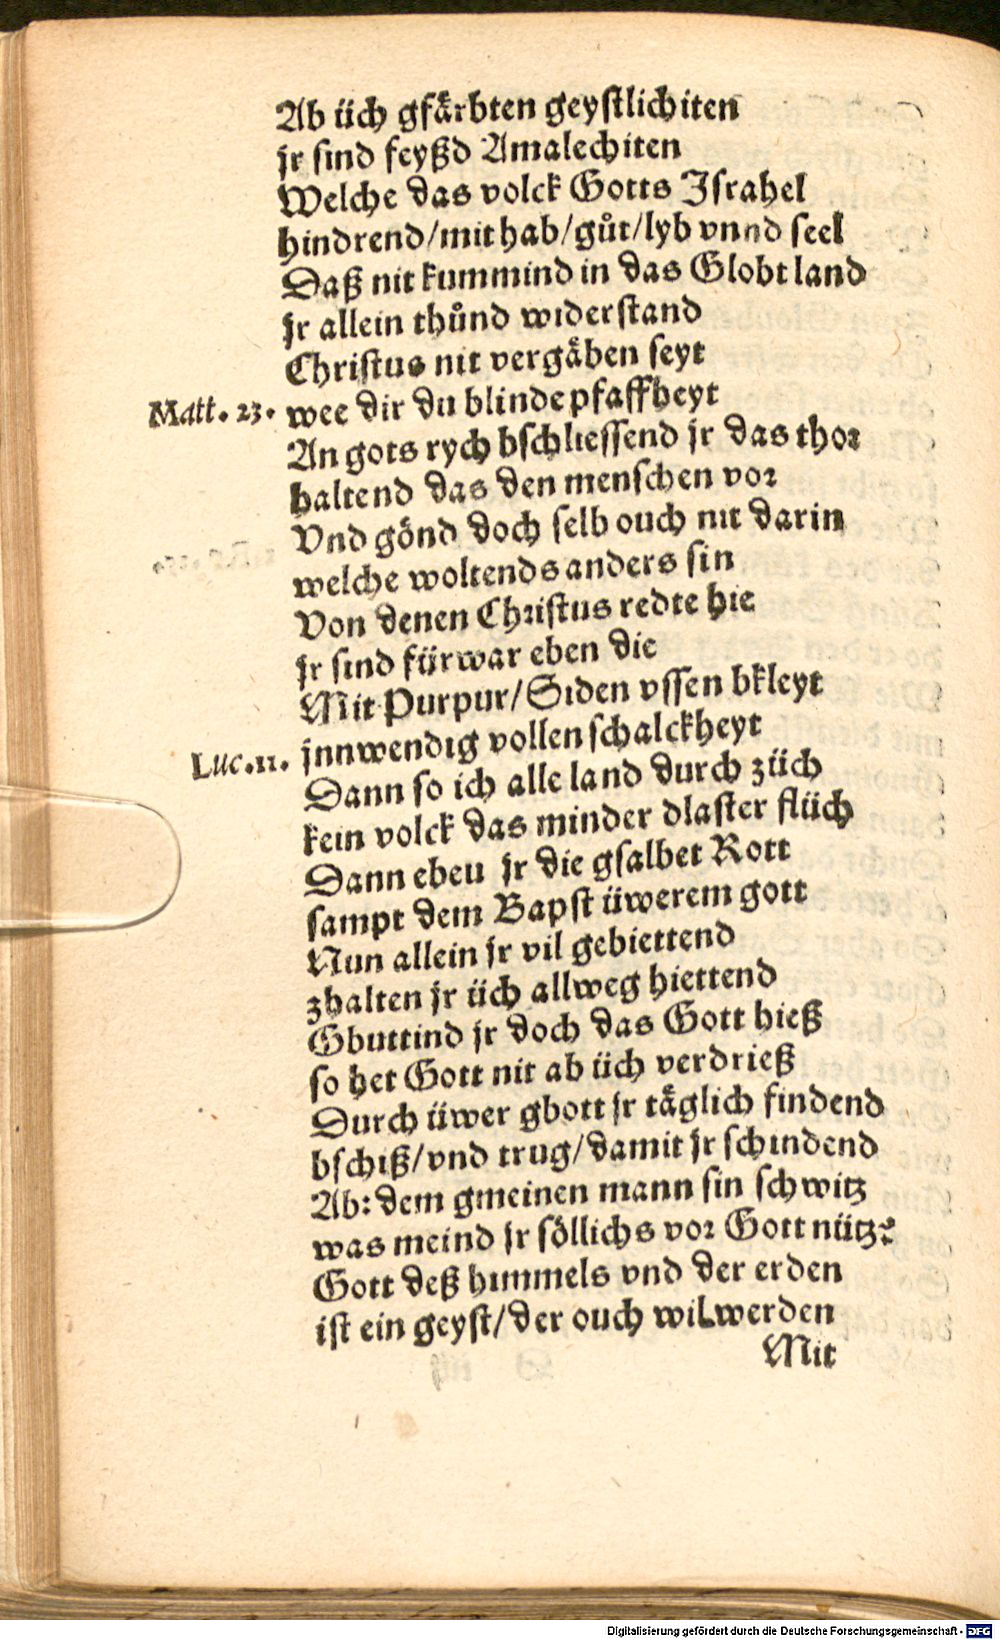 Ab üch gfärbten geystlichiten
jr sind feyßd Amalechiten
Welche das volck Gotts Israhel
hindrend/mit hab/gůt/lyb vnnd seel
Daß nit kummind in das Globt land
jr allein thůnd widerstand
Christus nit vergäben seyt
Matt. 23. wee dir du blinde pfaffheyt
An gots rych bschliessend jr das thor
haltend das den menschen vor
Vnd gönd doch selb ouch nit darin
welche woltends anders sin
Von denen Christus redte hie
jr sind fürwar eben die
Mit Purpur/Siden vssen bkleyt
Luc. 11. jnnwendig vollen schalckheyt
Dann so ich alle land durch züch
kein volck das minder dlaster flüch
Dann ebeu jr die gsalbet Rott
sampt dem Bapst üwerem gott
Nun allein jr vil gebiettend
zhalten jr üch allweg hiettend
Gbuttind jr doch das Gott hieß
so het Gott nit ab üch verdrieß
Durch üwer gbott jr täglich findend
bschiß/vnd trug/damit jr schindend
Ab: dem gmeinen mann sin schwitz
was meind jr söllichs vor Gott nütz?
Gott deß himmels vnd der erden
ist ein geyst/der ouch wil werden
Mit
Digitalisierung gefördert durch die Deutsche Forschungsgemeinschaft - DFG